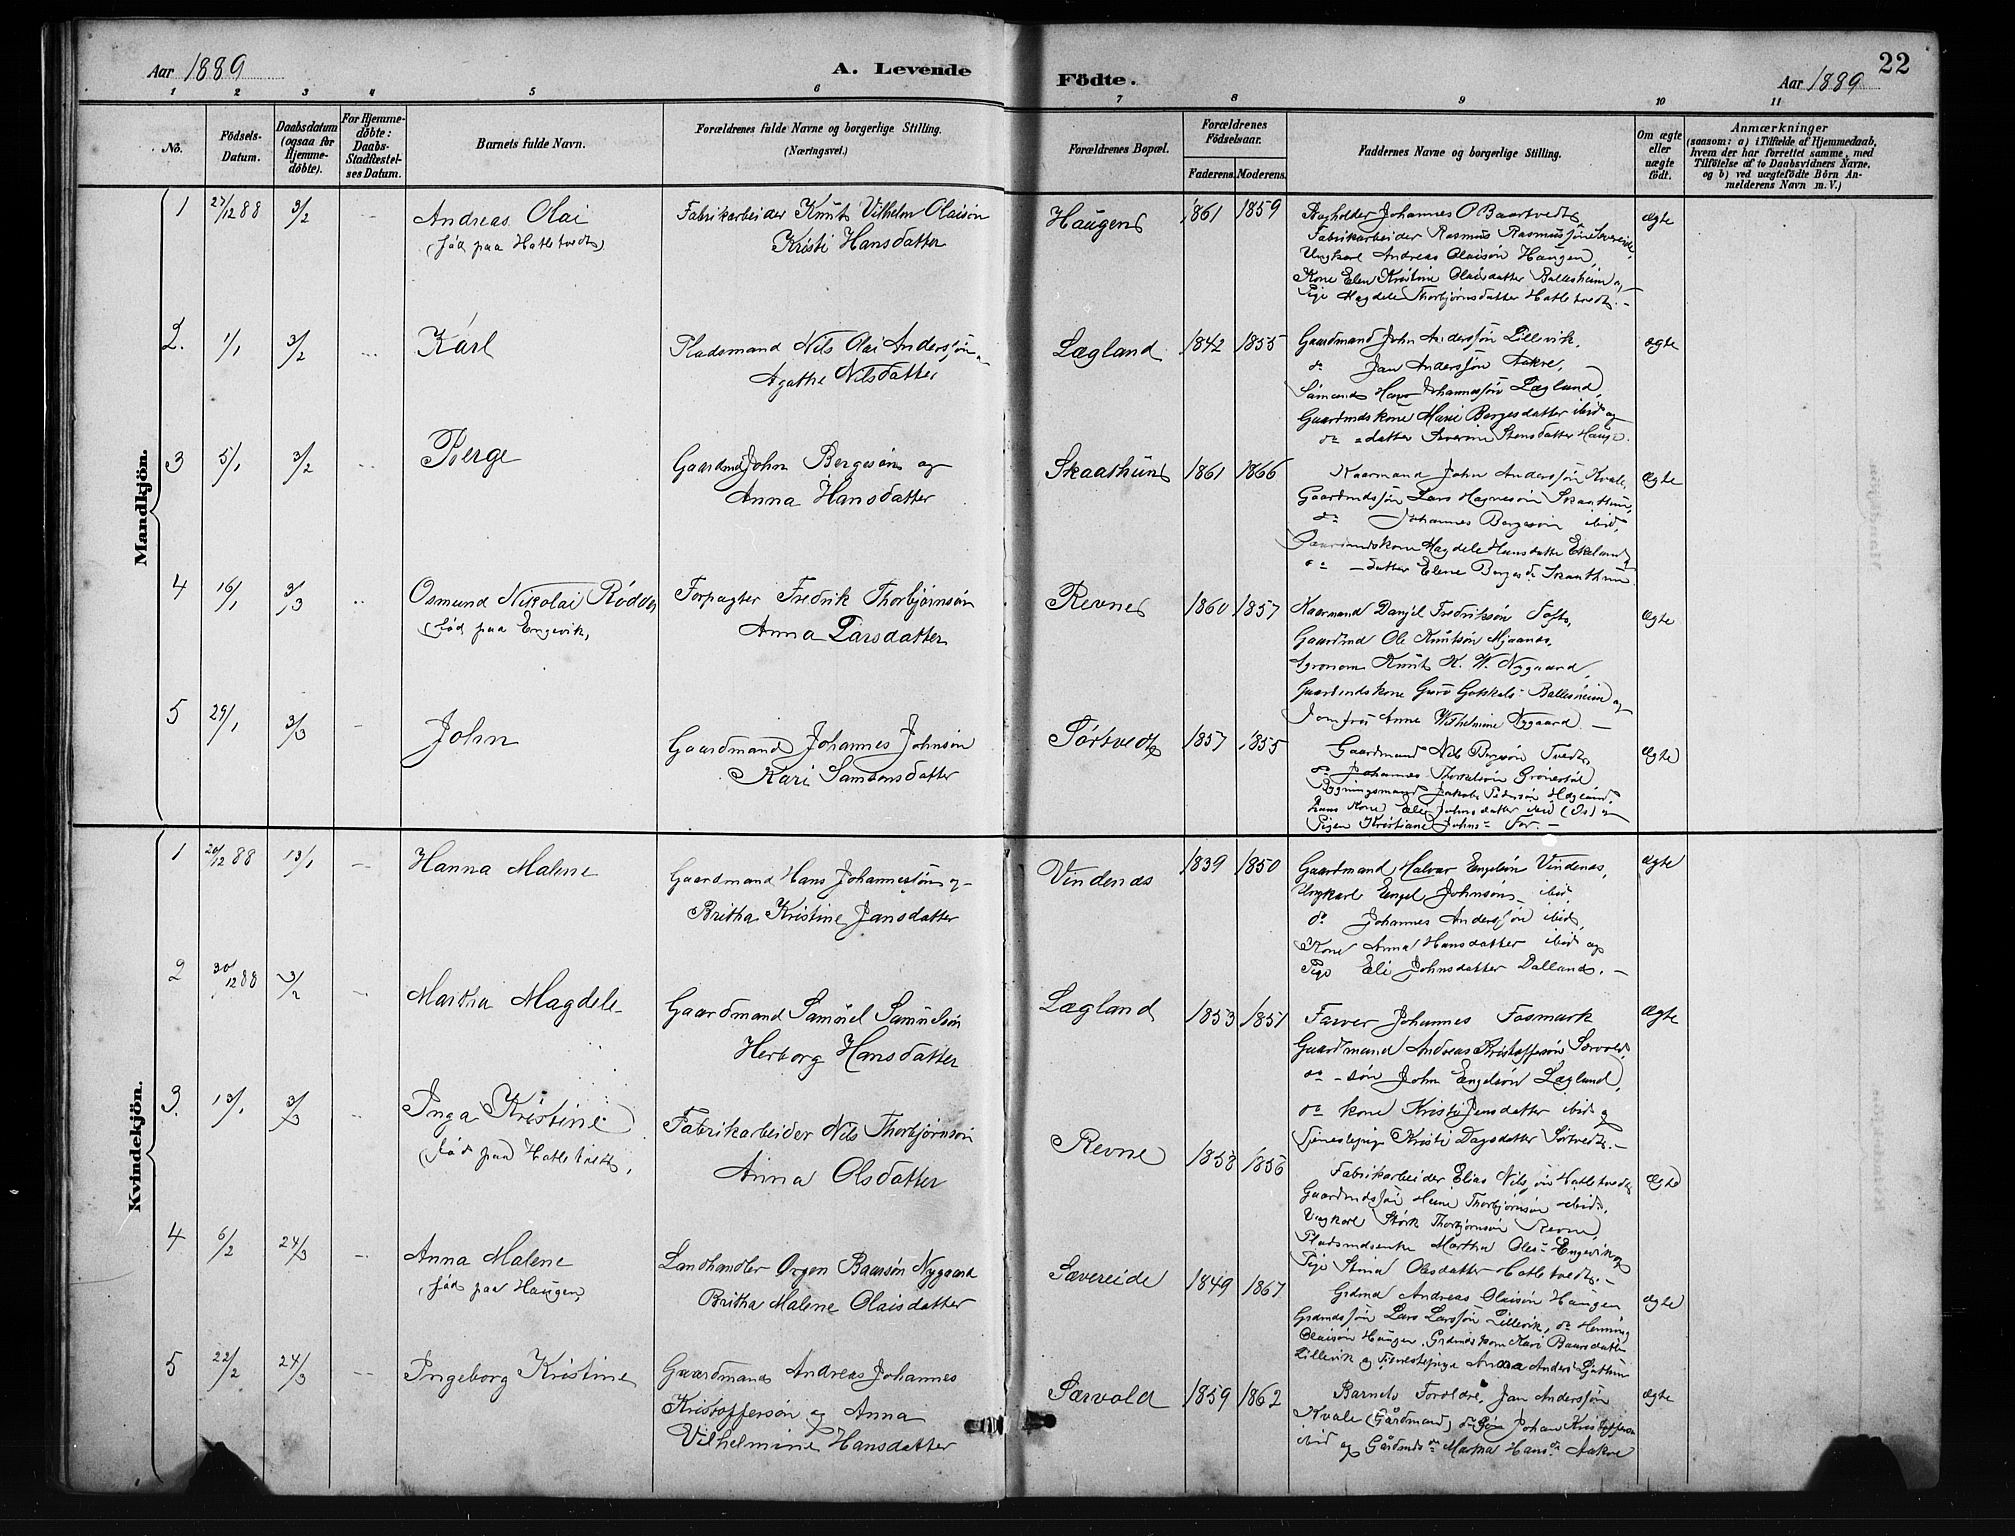 Aar 1889
A. Levende
Födte.
Aar 1889
22
1 2 3 4 5 6 7 8 9 10 11
No.
Födsels-Datum.
Daabsdatum (ogsaa for Hjemme-döbte).
For Hjemme-döbte: Daabs-Stadfæstel-ses Datum.
Barnets fulde Navn.
Forældrenes fulde Navne og borgerlige Stilling.
(Næringsvei.)
Forældrenes Bopæl.
Forældrenes Födselsaar.
Faderens. Moderens.
Faddernes Navne og borgerlige Stilling.
Om ægte eller uægte födt.
Anmærkninger
(saasom: a) i Tilfælde af Hjemmedaab,
hvem der har forrettet samme, med
Tilföielse af to Daabsvidners Navne.
og b) ved uægtefödte Börn An-
melderens Navn m. V.)
Mandkjön.
1 27/12 88 3/2 Andreas Olai Fabrikarbeider Knut Vilhelm Olaisön Haugen 1861 1859 Johannes O Baartvedt, ægte
(fød paa Hatletvedt) Kristi Hansdatter
Fabrikarbeider Rasmus Rasmussön Sævereide,
Ungkarl Andreas Olaisön Haugen,
Kone Elen Kristine Olaisdatter Ballesheim og
Pige Magdele Thorbjørnsdatter Hatletvedt. —
2. 1/1 3/2 Karl Pladsmand Nils Olai Anderssön Lægland 1842 1855 Gaardmand John Anderssön Lillevik, ægte
Agathe Nilsdatter do Jan Anderssön Aakre,
Johannessön Lægland,
Gaardmdskone Mari Børgesdatter ibid og
do datter Severine Stensdatter Hauge.
3 5/1 3/2 Berge Gaardmd John Bergesön og Skaathun 1861 1866 Kaarmand John Anderssön Kvale, Ægte
Anna Hansdatter Gaardmdssön Lars Magnesön Skaathun,
do Johannes Bergesön ibid,
Gaardmandskone Magdele Hansdatter Ekeland
do datter Elene Berges do Skaathun
4 16/1 3/3 Osmund Nikolai Rødder Forpagter Fredrik Thorbjørnsön Revne 1860 1857 Kaarmand Daniel Fredriksön Tofte, Ægte
(fød paa Engevik, Anna Larsdatter Gaardmd Ole Knutsön Mjaanes,
Agronom Knut K. W. Nygaard,
Gaardmdskone Guro Ballesheim og
Jomfru Anne Wilhelmine Nygaard —
5 29/1 3/3 John Gaardmand Johannes Johnsön Sørtvedt 1857 1855 Gaardmand Nils Bergesön Tvedt, Ægte
Kari Samsonsdatter do Johannes Thorkelsön Grönestöl
Bygningsmand Jakob Pedersön Hægland,
hans Kone Eli Johnsdatter ibid (Os) og
Pigen Kristiane Johns
Kvindekjön.
1 20/12 88 13/1 Hanna Malene Gaardmand Hans Johannessön og Vindenæs 1839 1850 Gaardmand Halvar Engelsön Vindenæs, Ægte
Britha Kristine Jansdatter Ungkarl Engel Johnsön ibid,
do Johannes Anderssön ibid,
Kone Anna Hansdatter ibid og
Pige Eli Johnsdatter Dalland. —
2 30/12 88 3/2 Martha Magdele Gaardmand Samuel Samuelsön Lægland 1853 1851 Farver Johannes Fosmark Ægte
Herborg Hansdatter Gaardmand Andreas Kristoffersön Særvold,
do sön John Engelsön Lægland,
do kone Kristi Jensdatter ibid og
Tjenestepige Kristi Dagsdatter Sørtvedt. —
3. 13/1 3/3 Inga Kristine Fabrikarbeider Nils Thorbjørnsön Revne 1858 1856 Fabrikarbeider Elias Nilsön Hatletvedt Ægte
(fød paa Hatletvedt, Anna Olsdatter Gaardmdssön Thorbjørnsön ibid,
Ungkarl Størk Thorbjørnsön Revne,
Pladsmdsenke Martha Engevik og
Pige Stina Olsdatter Hatletvedt. —
4 6/2 24/3 Anna Malene Landhandler Ørgen Baarsön Nygaard Sævereide 1849 1867 Grdmd Andreas Olaisön Haugen ægte
(fød paa Haugen, Britha Malene Olaisdatter Grdmdssön Lars Larssön Lillevik, do Henning
Olaisön Haugen, Grdmdskone Kari Baarsdatter
Lillevik og Tjenestepige Anna
5 22/2 24/3 Ingeborg Kristine Gaardmand Andreas Johannes Særvold 1859 1862 Barnets Foreldre, Jan Anderssön ægte
Kristoffersön og Anna Kvale (Gårdmand) do sön Johan Kristoffersen
Vilhelmine Hansdatter ibid og Gårdmds do Martha Hans do Aakre